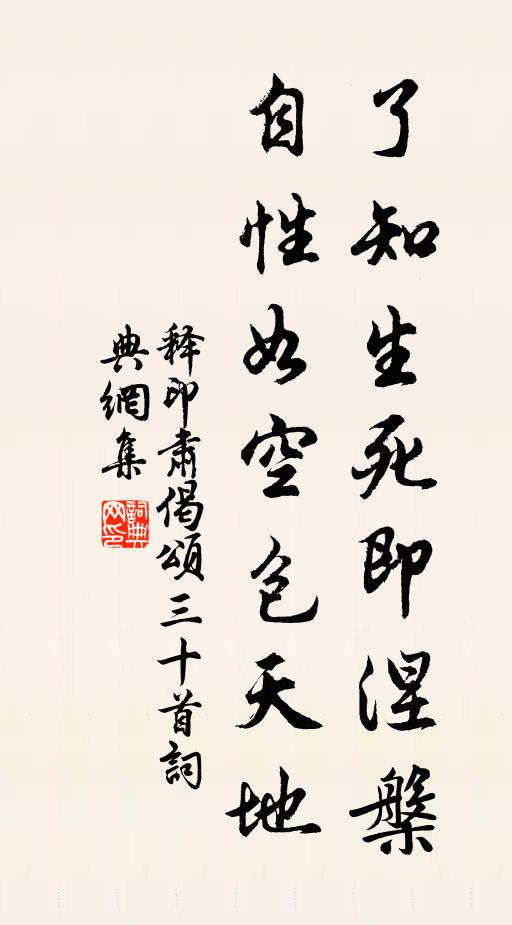 了知生死即涅槃
自性如空包天地
释印肃偈頌三十首詞
典網集
詞典
网印